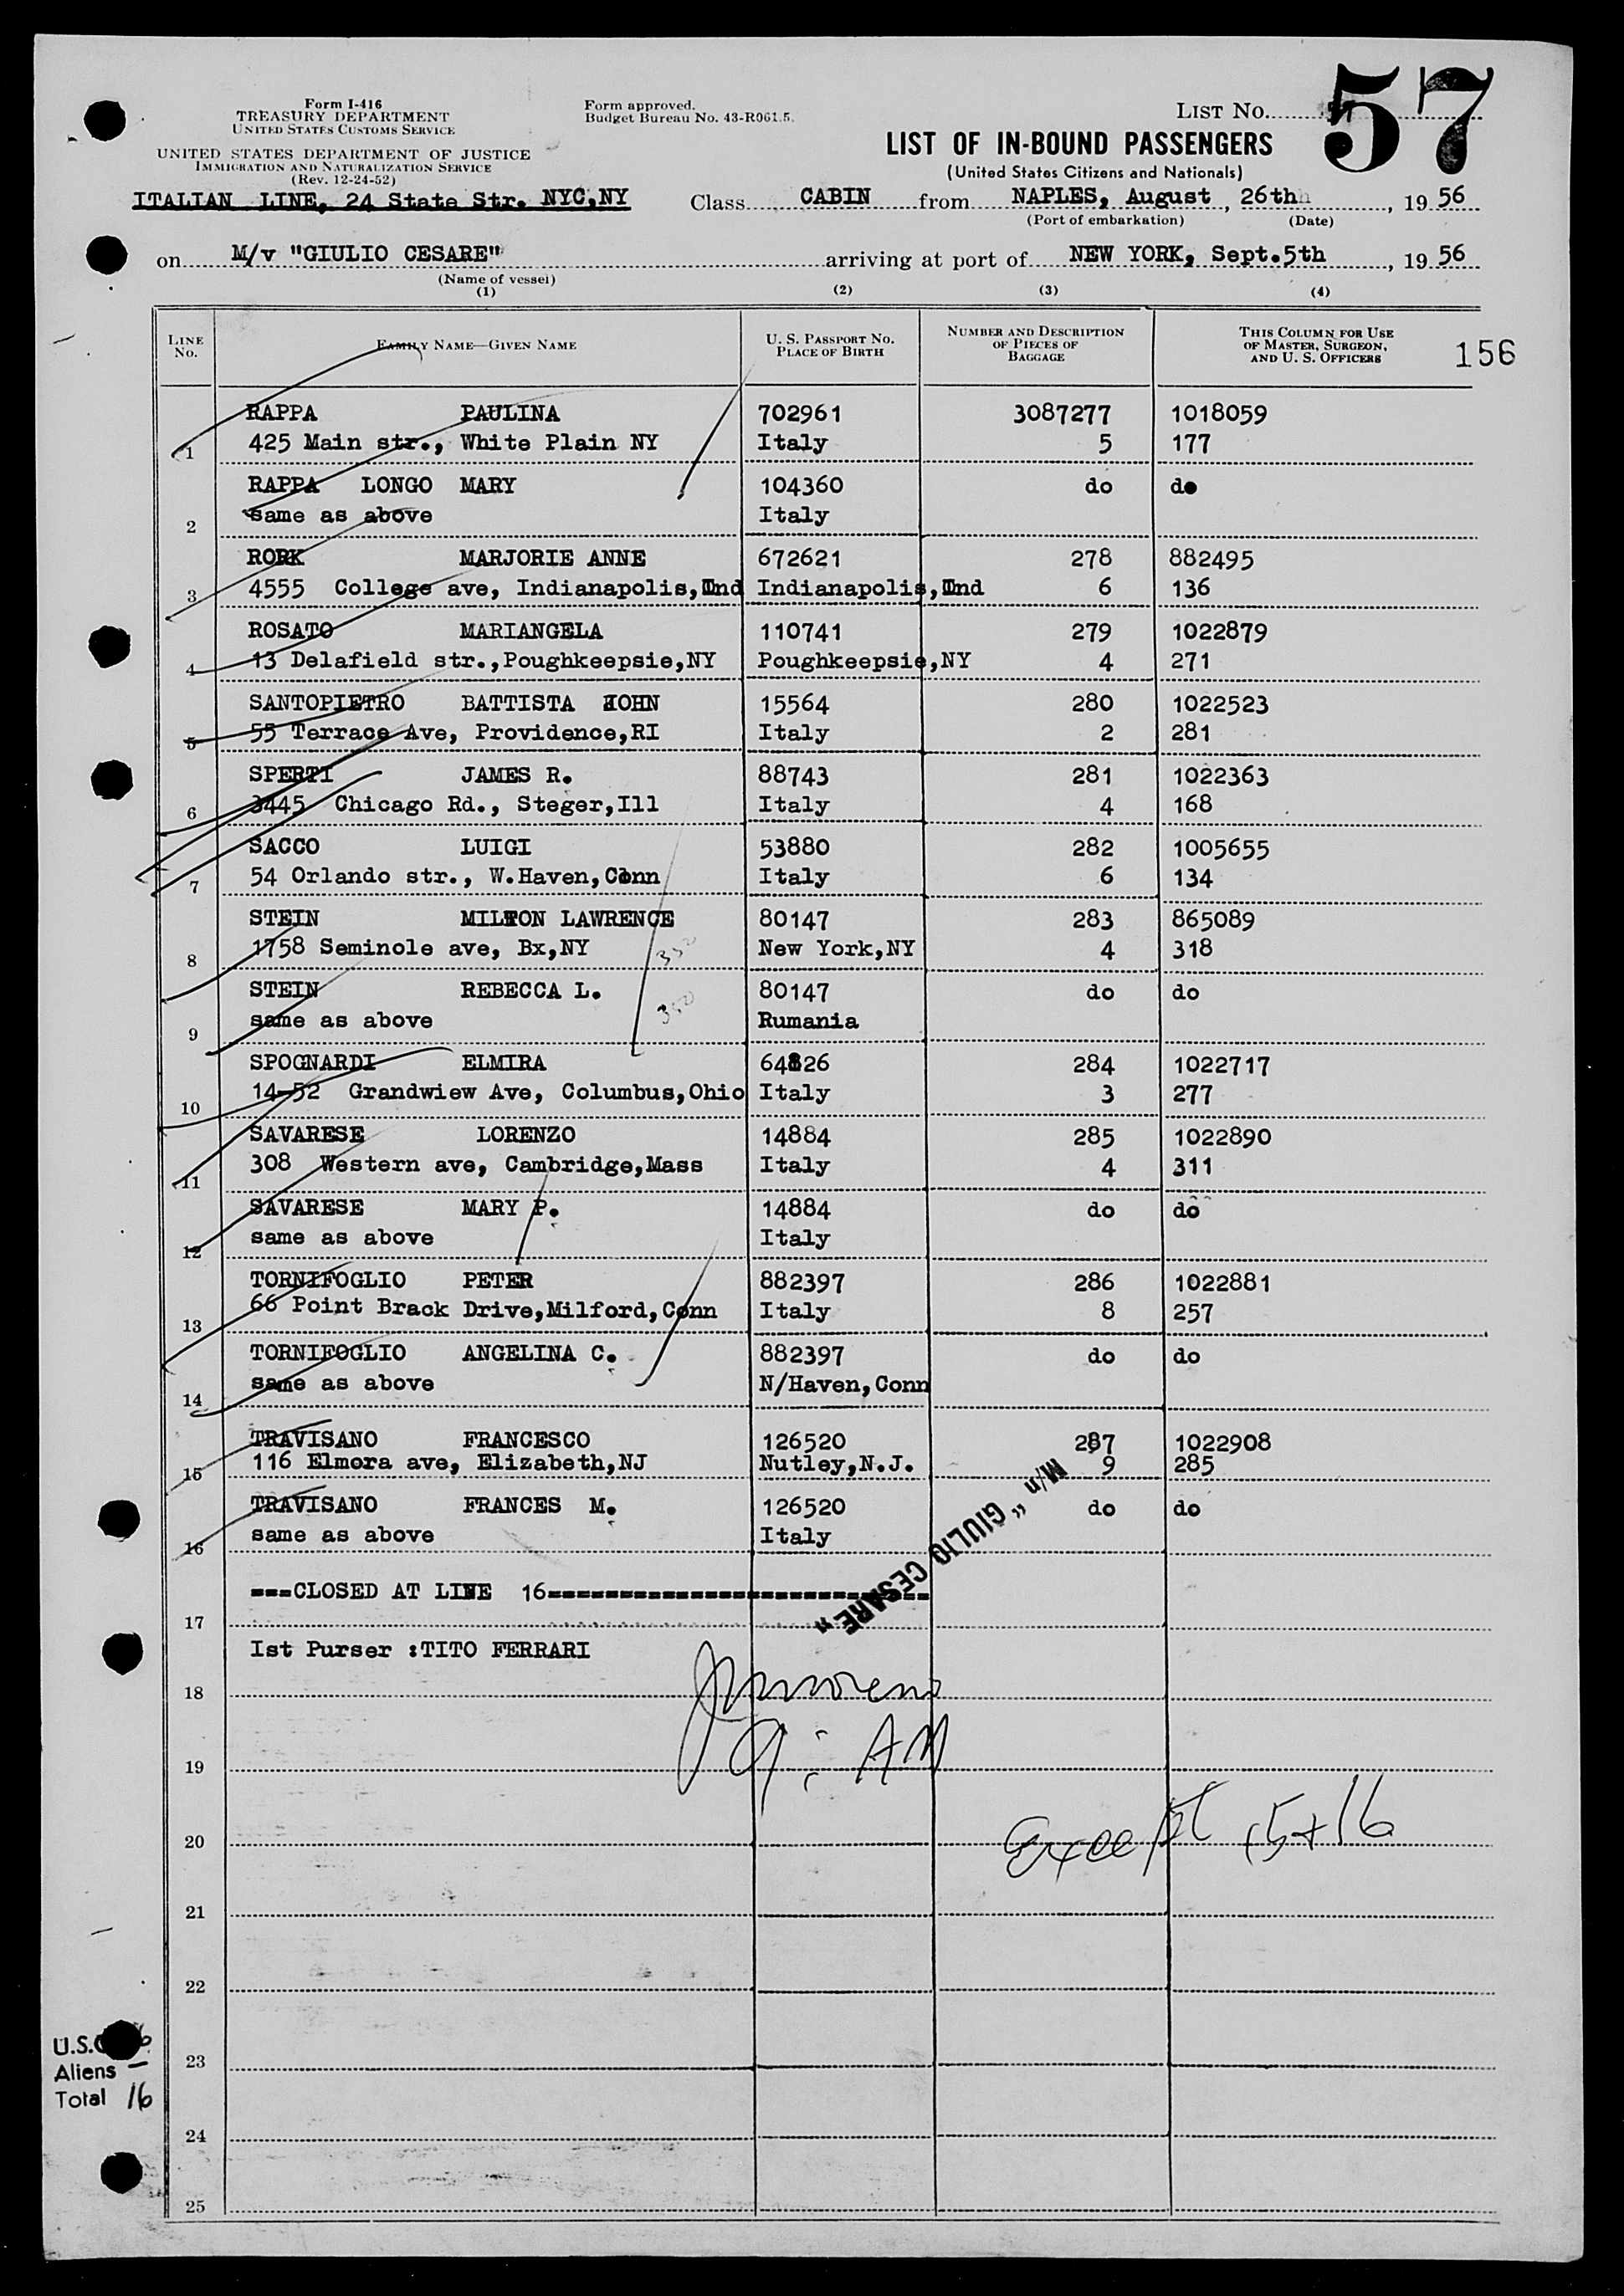 Form I-416
TREASURY DEPARTMENT
UNITED STATES CUSTOMS SERVICE
UNITED STATES DEPARTMENT OF JUSTICE
IMMIGRATION AND NATURALIZATION SERVICE
(Rev. 12-24-52)
Form approved.
Budget Bureau No. 43-R061.5.
LIST No. 57
LIST OF IN-BOUND PASSENGERS
(United States Citizens and Nationals)
ITALIAN LINE, 24 State Str. NYC,NY Class CABIN from NAPLES, August, 26th, 19 56
(Port of embarkation) (Date)
on M/v "GIULIO CESARE" arriving at port of NEW YORK, Sept.5th, 19 56
(Name of vessel)
(1) (2) (3) (4)
LINE No. FAMILY NAME—GIVEN NAME U. S. PASSPORT NO. PLACE OF BIRTH NUMBER AND DESCRIPTION OF PIECES OF BAGGAGE THIS COLUMN FOR USE OF MASTER, SURGEON, AND U. S. OFFICERS
156
RAPPA PAULINA 702961 3087277 1018059
1 425 Main str., White Plain NY Italy 5 177
RAPPA LONGO MARY 104360 do do
2 same as above Italy
RORK MARJORIE ANNE 672621 278 882495
3 4555 College ave, Indianapolis,Ind Indianapolis,Ind 6 136
ROSATO MARIANGELA 110741 279 1022879
4 13 Delafield str.,Poughkeepsie,NY Poughkeepsie,NY 4 271
SANTOPIETRO BATTISTA JOHN 15564 280 1022523
5 55 Terrace Ave, Providence,RI Italy 2 281
SPERTI JAMES R. 88743 281 1022363
6 3445 Chicago Rd., Steger,Ill Italy 4 168
SACCO LUIGI 53880 282 1005655
7 54 Orlando str., W.Haven,Conn Italy 6 134
STEIN MILTON LAWRENCE 80147 283 865089
8 1758 Seminole ave, Bx,NY New York,NY 4 318
STEIN REBECCA L. 80147 do do
9 same as above Rumania
SPOGNARDI ELMIRA 64826 284 1022717
10 14-52 Grandwiew Ave, Columbus,Ohio Italy 3 277
SAVARESE LORENZO 14884 285 1022890
11 308 Western ave, Cambridge,Mass Italy 4 311
SAVARESE MARY P. 14884 do do
12 same as above Italy
TORNIFOGLIO PETER 882397 286 1022881
13 66 Point Brack Drive,Milford,Conn Italy 8 257
TORNIFOGLIO ANGELINA C. 882397 do do
14 same as above N/Haven,Conn
TRAVISANO FRANCESCO 126520 287 1022908
15 116 Elmora ave, Elizabeth,NJ Nutley,N.J. 9 285
TRAVISANO FRANCES M. 126520 do do
16 same as above Italy
M/n "GIULIO CESARE"
===CLOSED AT LINE 16===========================
17
Ist Purser :TITO FERRARI
18
19
AM
20 Except 15+16
21
22
U.S.C.
23
Aliens –
Total 16
24
25